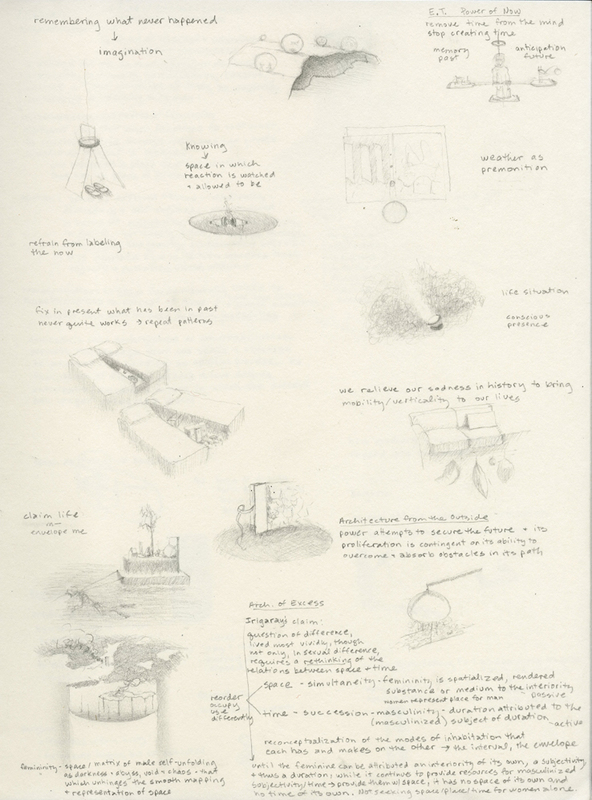 remembering what never happened
↓
imagination
E.T. Power of Now
remove time from the mind
stop creating time
memory
past
anticipation
future
Knowing
↓
space in which
reaction is watched
+ allowed to be
weather as
premonition
refrain from labeling
the now
life situation
conscious
presence
fix in present what has been in past
never quite works → repeat patterns
we relieve our sadness in history to bring
mobility/verticality to our lives
claim life
envelope me
Architecture from the Outside
power attempts to secure the future + its
proliferation is contingent on its ability to
overcome + absorb obstacles in its path
Arch. of Excess
Irigaray's claim:
question of difference,
lived most vividly, though
not only, in sexual difference,
requires a rethinking of the
relations between space + time
reorder
occupy
use
differently
space - simultaneity - femininity is spatialized, rendered
substance or medium to the interiority
women represent place for man
passive
time - succession - masculinity - duration attributed to the
(masculinized) subject of duration
active
reconceptualization of the modes of inhabitation that
each has and makes on the other → the interval, the envelope
until the feminine can be attributed an interiority of its own, a subjectivity,
+ thus a duration; while it continues to provide resources for masculinized
subjectivity/time to provide them w/ space, it has no space of its own and
no time of its own. Not seeking space/place/time for women alone.
femininity - space / matrix of male self-unfolding
as darkness + abyss, void + chaos + that
which unhinges the smooth mapping
+ representation of space